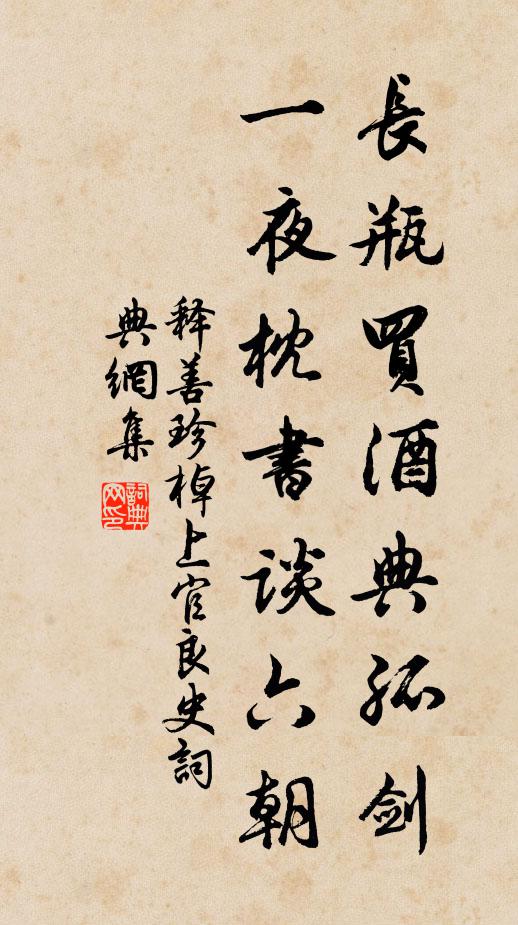 長瓶買酒典孤劍
一夜枕書談六朝
释善珍悼上官良史詞
典網集
詞典
网印